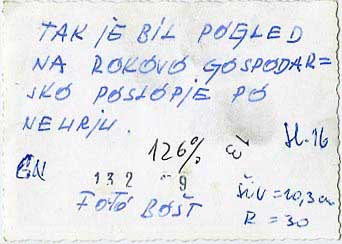 TAK JE BIL POGLED
NA ROKOVO GOSPODAR=
SKO POSLOPJE PO
NEURJU.
126%
13
Sl. 16
GN
132 9
FOTO BOŠT
ŠIV = 20,3 cm
R = 30